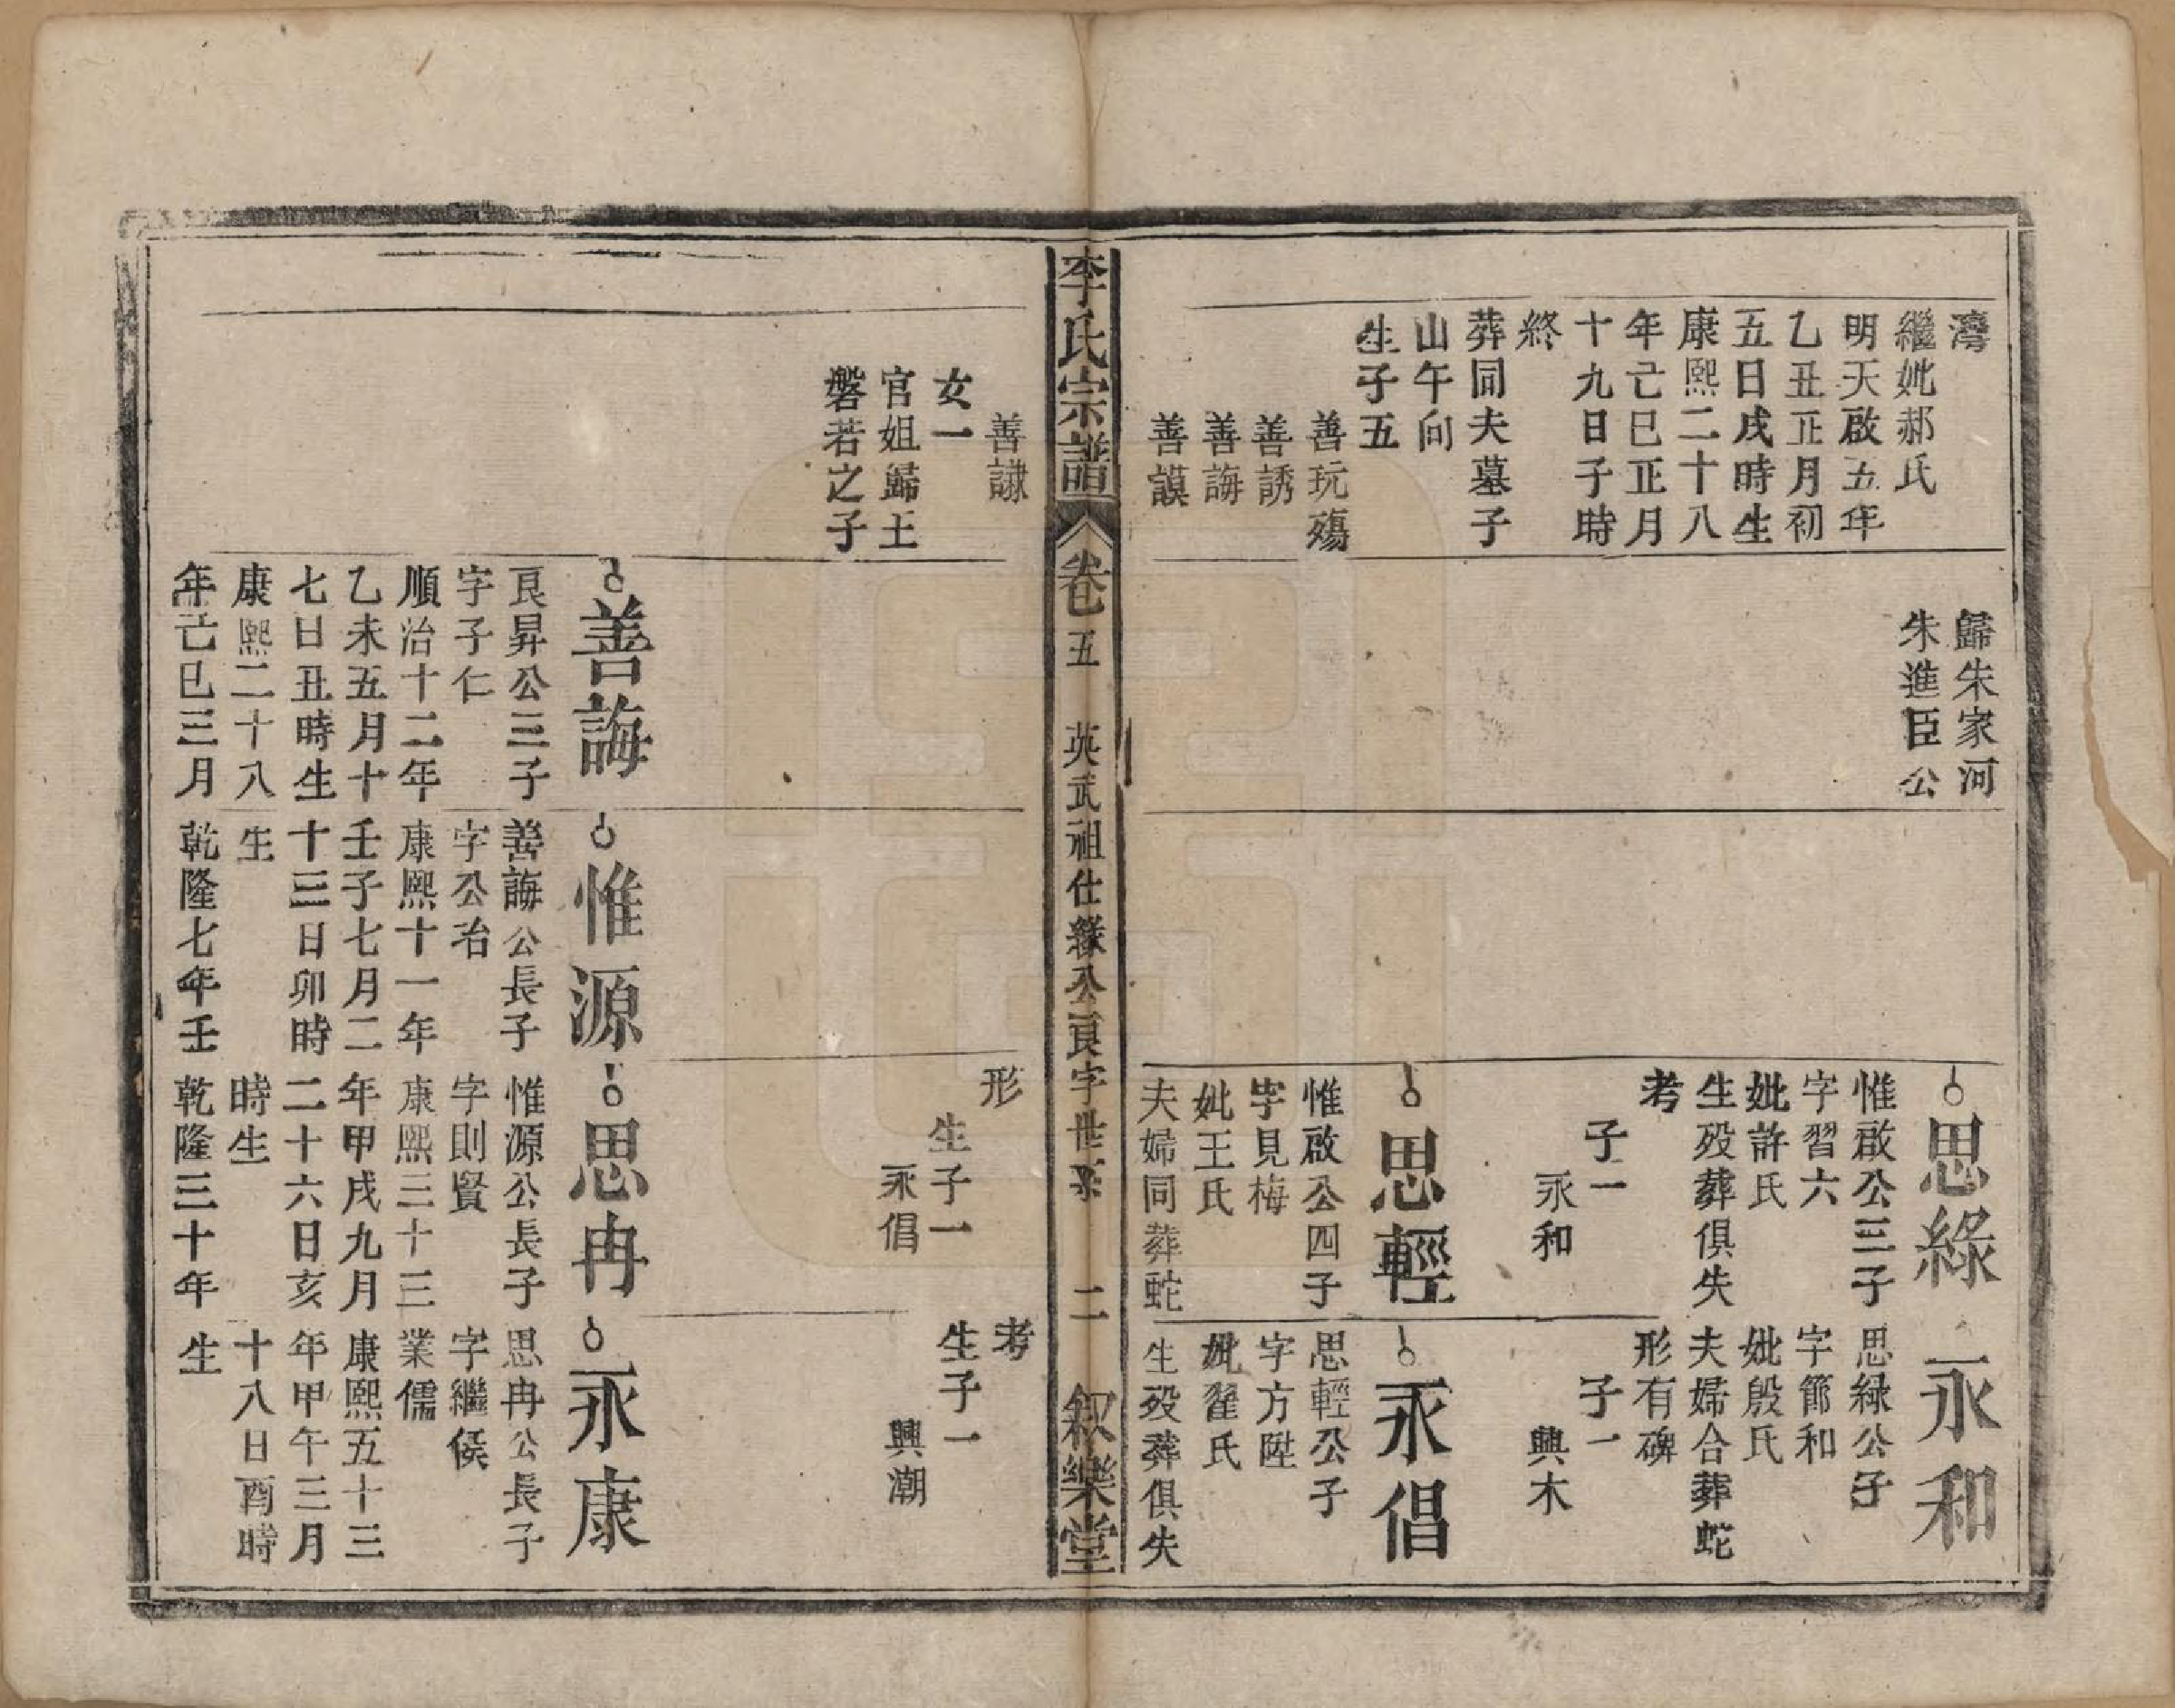 灣
繼妣郝氏
明天啟五年
乙丑正月初
五日戌時生
康熙二十八
年己巳正月
十九日子時
終
葬同夫墓子
山午向
生子五
善玩殤
善誘
善誨
善謨
歸朱家河
朱進臣公
思綠
惟啟公三子
字習六
妣許氏
生歿葬俱失
考
子一
永和
思輕
惟啟公四子
字見梅
妣王氏
夫婦同葬蛇
永和
思綠公子
字節和
妣殷氏
夫婦合葬蛇
形有碑
子一
興木
永倡
思輕公子
字方陞
妣翟氏
生歿葬俱失
李氏宗譜
卷五
英武祖仕緣公良字世系
二
叙樂堂
善謙
女一
官姐歸王
磐若之子
善誨
良昇公三子
字子仁
順治十二年
乙未五月十
七日丑時生
康熙二十八
年己巳三月
惟源
善誨公長子
字公治
康熙十一年
壬子七月二
十三日卯時
生
乾隆七年壬
形
生子一
永倡
思冉
惟源公長子
字則賢
康熙三十三
年甲戌九月
二十六日亥
時生
乾隆三十年
考
生子一
興潮
永康
思冉公長子
字繼侯
業儒
康熙五十三
年甲午三月
十八日酉時
生